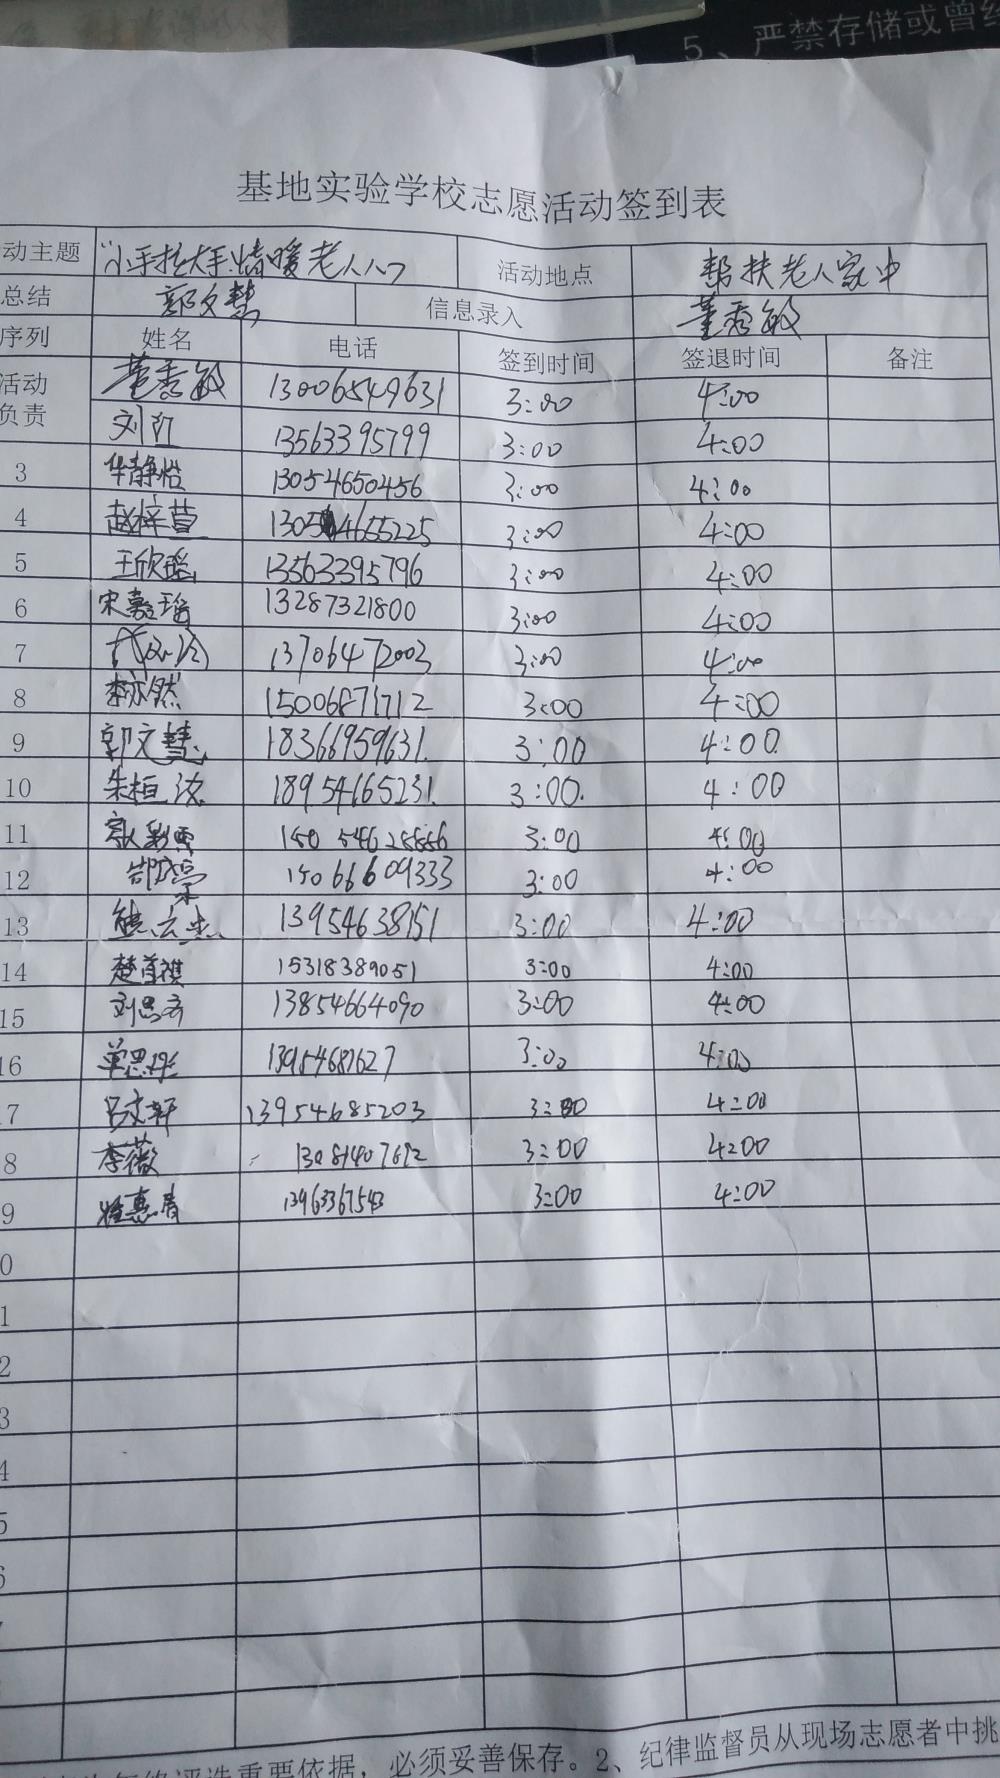 5、严禁存储或曾经
基地实验学校志愿活动签到表
动主题 "小手拉大手.情暖老人心 活动地点 帮扶老人家中
总结 郭文慧 信息录入 董秀敏
序列 姓名 电话 签到时间 签退时间 备注
活动负责 董秀敏 13006549631 3:00 4:00
刘红 13563395799 3:00 4:00
3 华静怡 13054650456 3:00 4:00
4 赵梓萱 13054655225 3:00 4:00
5 王欣瑶 13563395796 3:00 4:00
6 宋嘉瑶 13287321800 3:00 4:00
7 13706472003 3:00 4:00
8 李亦然 15006871712 3:00 4:00
9 郭文慧 18366959631. 3:00 4:00.
10 朱桓 18954665231. 3:00. 4:00
11 3:00 4:00
12 15066609333 3:00 4:00
13 熊云杰 13954638151 3:00 4:00
14 楚首祺 15318389051 3:00 4:00
15 刘思齐 13854664090 3:00 4:00
16 单思彤 3:00 4:00
7 吕文轩 13954685203 3:00 4:00
8 李薇 3:00 4:00
9 惠青 13963367543 3:00 4:00
0
1
2
3
4
5
6
重要依据，必须妥善保存。2、纪律监督员从现场志愿者中挑